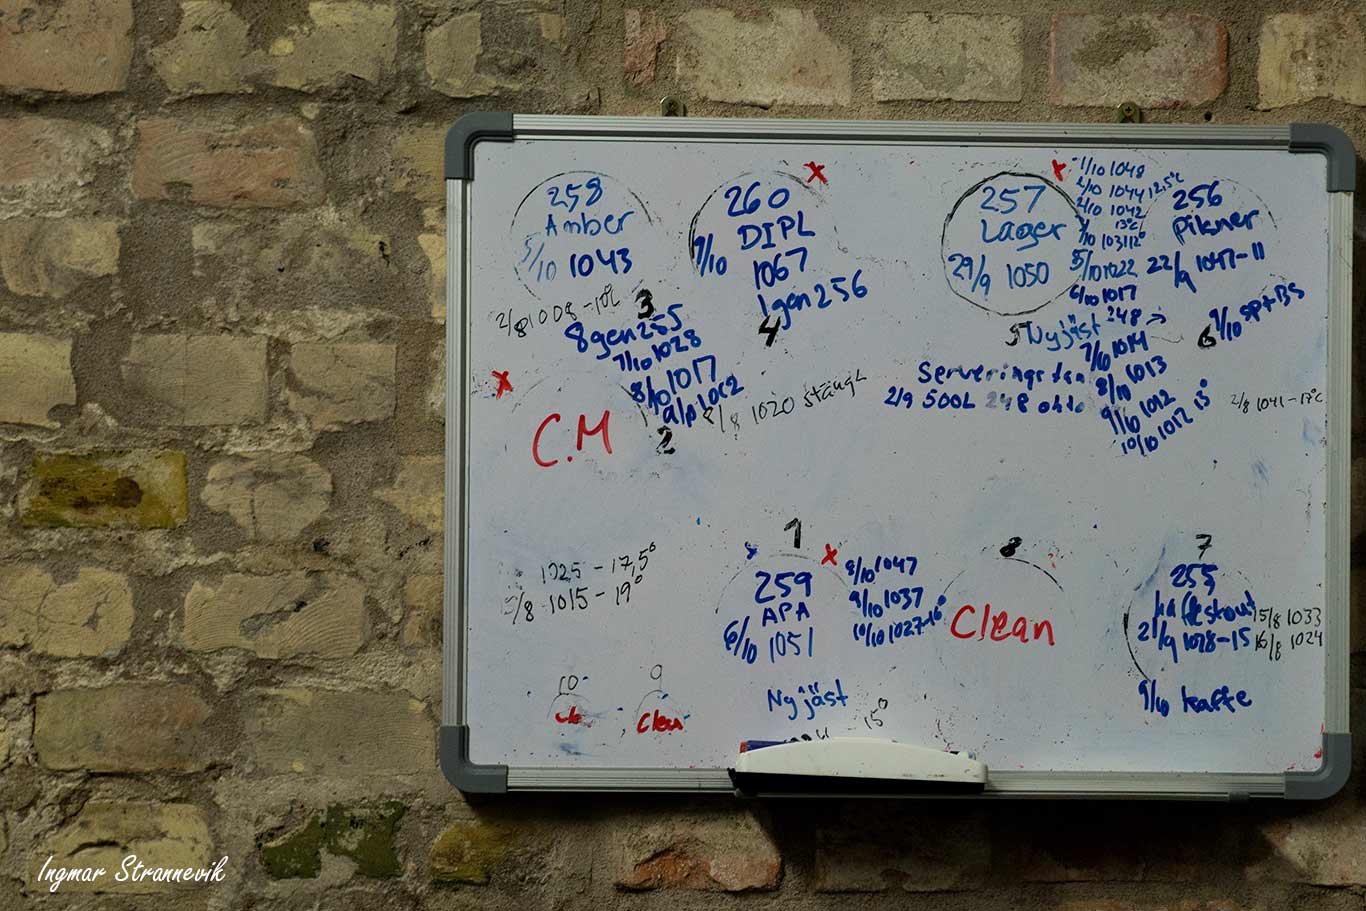 258
Amber
5/10 1043
2/8 1008-10°C
3
8 gen 255
7/10 1028
8/10 1017
9/10 1012
2
8/8 1020 stängt
X
C.M
X
260
DIPL
7/10
1067
1 gen 256
4
257
Lager
29/9 1050
5 Nyjäst 248
Serveringstan
2/9 500L 248
X
1/10 1048
2/10 1044 12,5°C
2/10 1042
13°C
1031 12°
5/10 1022
6/10 1017
7/10 1014
8/10 1013
9/10 1012
10/10 1012 13°
256
Pilsner
22/9 1047-11
6
9/10 SP+BS
2/8 1041-17°C
1025-17,5°
5/8 1015-19°
1
X
259
APA
6/10 1051
Nyjäst
15°
8/10 1047
9/10 1037
10/10 1027
8
Clean
7
255
kaffestout
21/9 1078-15
9/10 kaffe
15/8 1033
16/8 1024
10
9
Clean
Ingmar Strannevik